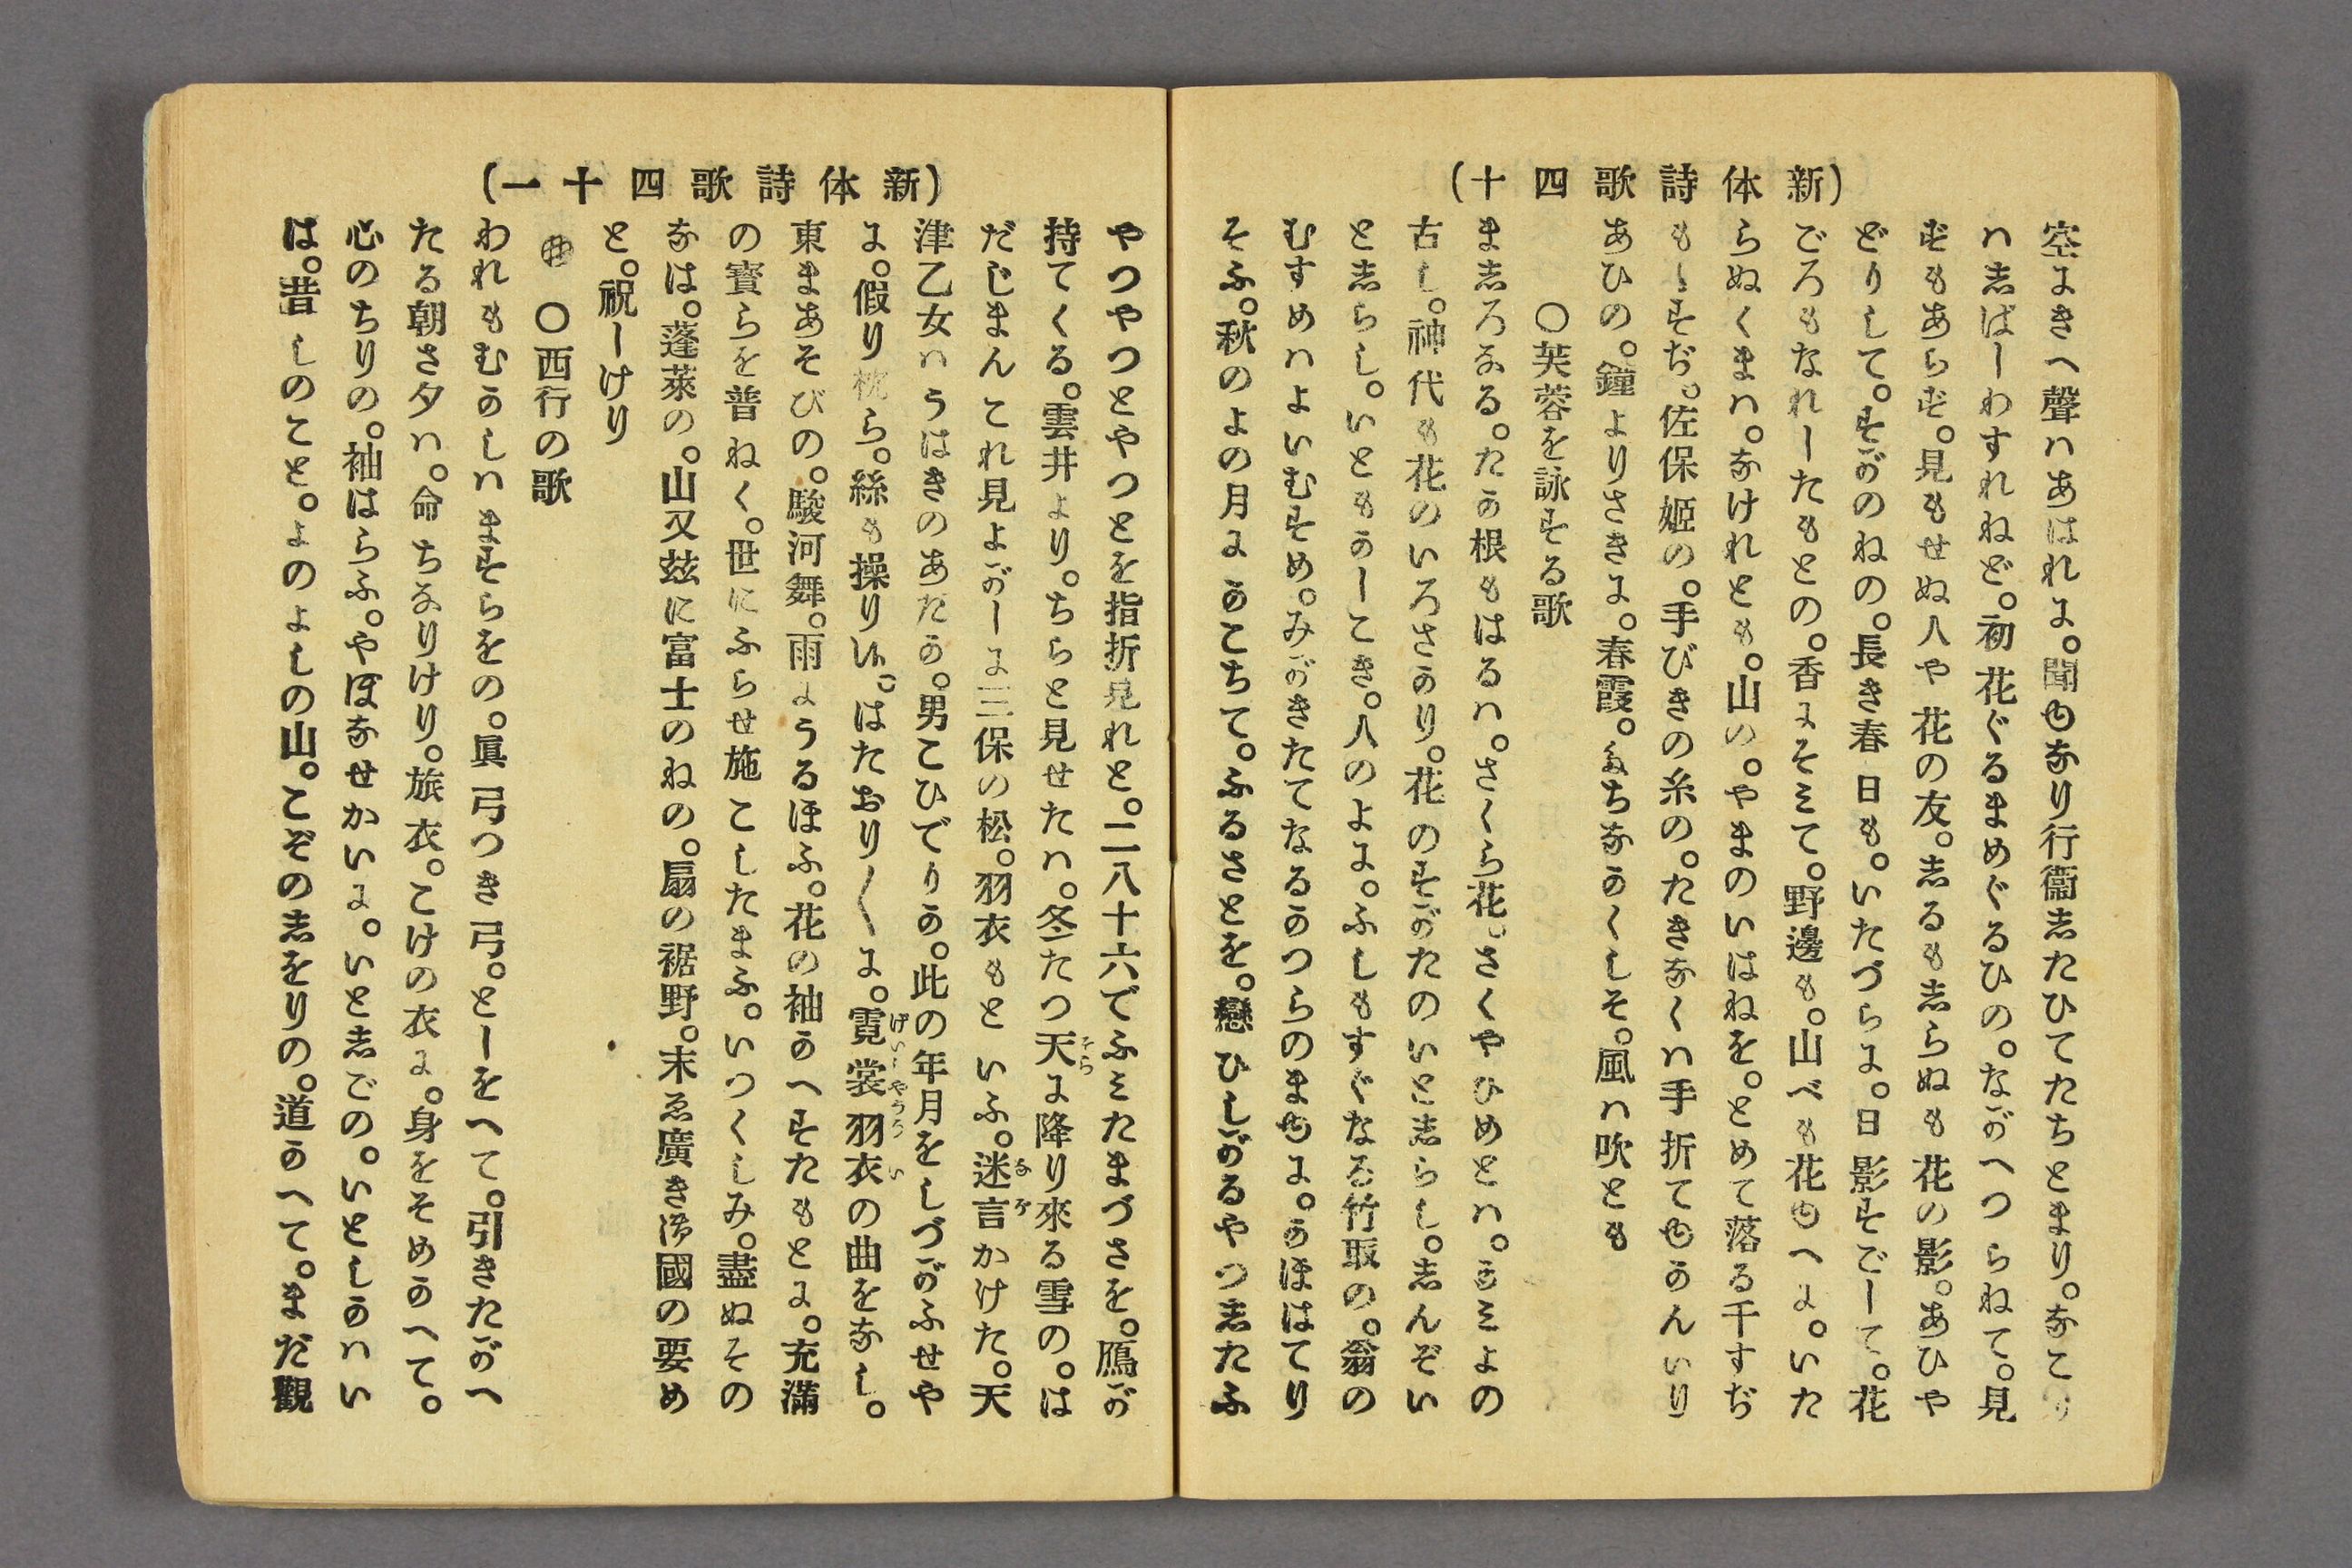 (新体詩歌四十)
空にきへ聲ハあはれに。聞ゆなり行衞志たひてたちとまり。なこり
ハ志ばしわすれねど。初花ぐるまめぐるひの。ながへつらねて。見
ずもあらず。見もせぬ人や花の友。志るも志らぬも花の影。あひや
どりして。すがのねの。長き春日も。いたづらに。日影すごして。花
ごろもなれしたもとの。香にそミて。野邊も。山べも花ゆへに。いた
らぬくまハ。なけれとも。山の。やまのいはねを。とめて落る千すぢ
もゝすぢ。佐保姫の。手びきの糸の。たきなくハ手折てゆかんいり
あひの。鐘よりさきに。春霞。たちなかくしそ。風ハ吹とも
〇芙蓉を詠する歌
ま志ろなる。たか根もはるハ。さくら花。さくやひめとハ。かミよの
古し。神代も花のいろさかり。花のすがたのいと志らし。志んぞい
と志らし。いともかしこき。人のよに。ふしもすぐなる竹取の。翁の
むすめハよいむすめ。みがきたてなるかつらのまゆに。かほはてり
そふ。秋のよの月にかこちて。ふるさとを。戀ひしがるやつ志たふ
(新体詩歌四十一)
やつやつとやつとを指折見れと。二八十六でふミたまづさを。鴈が
持てくる。雲井より。ちらと見せたハ。冬たつ天に降り來る雪の。は
だじまんこれ見よがしに三保の松。羽衣もといふ。迷言かけた。天
津乙女ハうはきのあだか。男こひでりか。此の年月をしづがふせや
に。假り枕ら。絲も操りい。はたおり〱に。霓裳羽衣の曲をなし。
東まあそびの。駿河舞。雨にうるほふ。花の袖かへすたもとに。充滿
の寳らを普ねく。世にふらせ施こしたまふ。いつくしみ。盡ぬその
なは。蓬萊の。山又玆に富士のねの。扇の裾野。末ゑ廣き御國の要め
と。祝しけり
〇西行の歌
われもむかしハますらをの。眞弓つき弓。としをへて。引きたがへ
たる朝さ夕ハ。命ちなりけり。旅衣。こけの衣に。身をそめかへて。
心のちりの。袖はらふ。やぼなせかいに。いと志ごの。いとしかハい
は。昔しのこと。よのよしの山。こぞの志をりの。道かへて。まだ觀